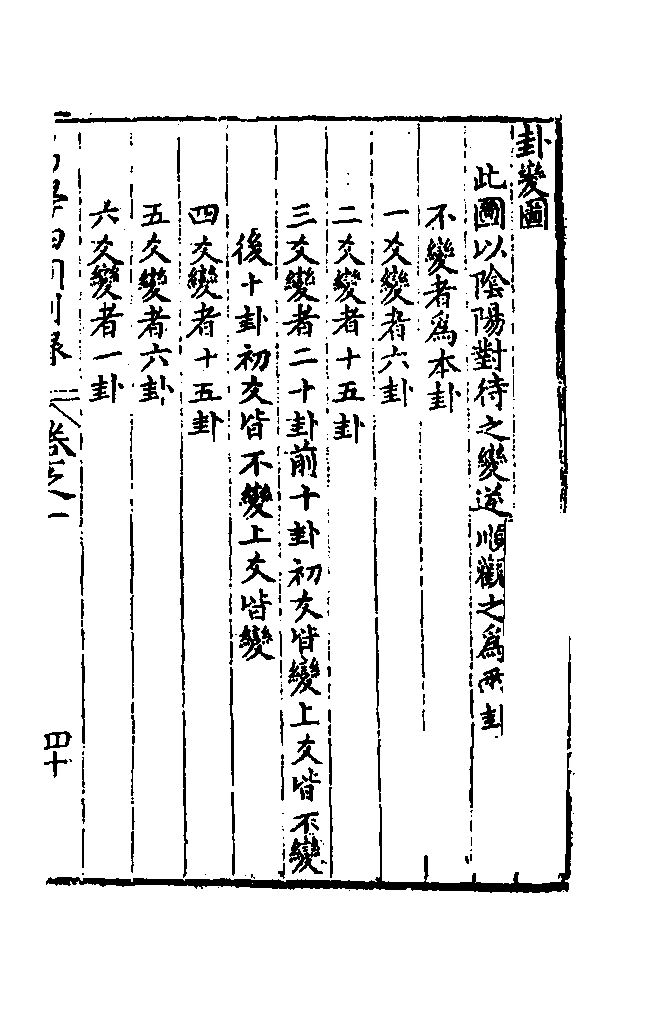 卦變圖
此圖以陰陽對待之變逆順觀之爲兩卦
不變者爲本卦
一爻變者六卦
二爻變者十五卦
三爻變者二十卦前十卦初爻皆變上爻皆不變
後十卦初爻皆不變上爻皆變
四爻變者十五卦
五爻變者六卦
六爻變者一卦
卷之一
四十